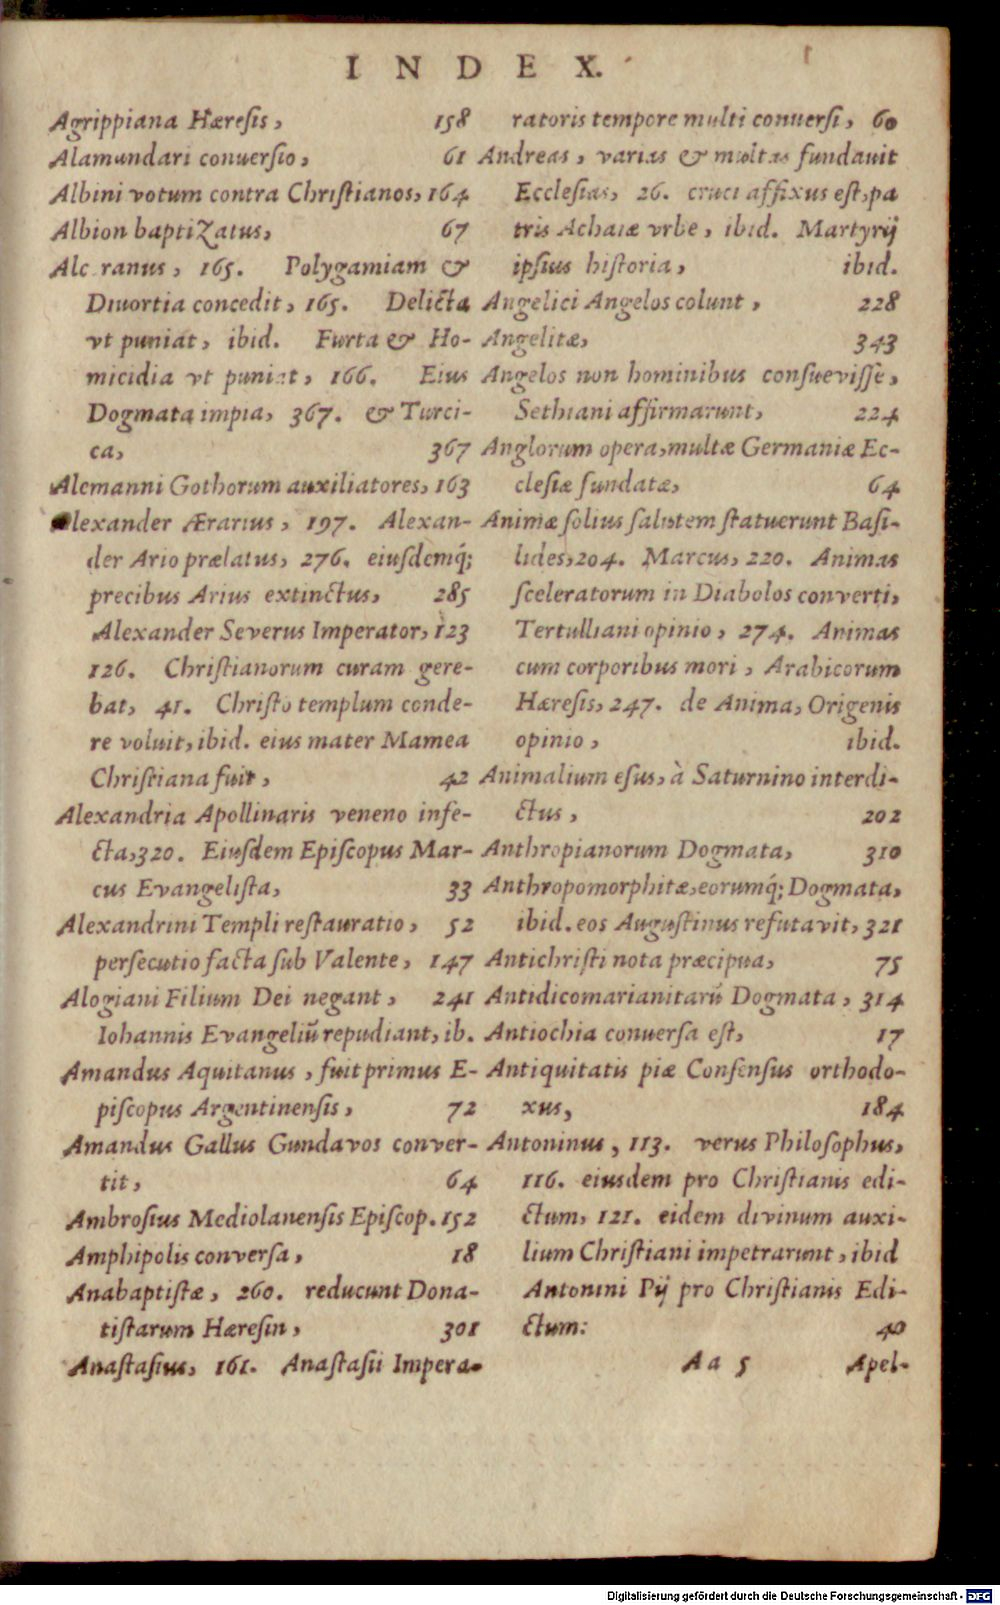 INDEX.
Agrippiana Hæresis, 158
Alamundari conuersio, 61
Albini votum contra Christianos, 164
Albion baptizatus, 67
Alc ranus, 165. Polygamiam &
Diuortia concedit, 165. Delicta
vt puniat, ibid. Furta & Ho-
micidia vt puniat, 166. Eius
Dogmata impia, 367. & Turci-
ca, 367
Alemanni Gothorum auxiliatores, 163
Alexander Ærarius, 197. Alexan-
der Ario prælatus, 276. eiusdemq́;
precibus Arius extinctus, 285
Alexander Severus Imperator, 123
126. Christianorum curam gere-
bat, 41. Christo templum conde-
re voluit, ibid. eius mater Mamea
Christiana fuit, 42
Alexandria Apollinaris veneno infe-
cta, 320. Eiusdem Episcopus Mar-
cus Evangelista, 33
Alexandrini Templi restauratio, 52
persecutio facta sub Valente, 147
Alogiani Filium Dei negant, 241
Iohannis Evangeliū repudiant, ib.
Amandus Aquitanus, fuit primus E-
piscopus Argentinensis, 72
Amandus Gallus Gundavos conver-
tit, 64
Ambrosius Mediolanensis Episcop. 152
Amphipolis conversa, 18
Anabaptistæ, 260. reducunt Dona-
tistarum Hæresin, 301
Anastasius, 161. Anastasii Impera-
ratoris tempore multi conuersi, 60
Andreas, varias & multas fundauit
Ecclesias, 26. cruci affixus est, pa
tris Achaiæ vrbe, ibid. Martyrij
ipsius historia, ibid.
Angelici Angelos colunt, 228
Angelitæ, 343
Angelos non hominibus consuevisse,
Sethiani affirmarunt, 224
Anglorum opera, multæ Germaniæ Ec-
clesiæ fundatæ, 64
Animæ solius salutem statuerunt Basi-
lides, 204. Marcus, 220. Animas
sceleratorum in Diabolos converti,
Tertulliani opinio, 274. Animas
cum corporibus mori, Arabicorum
Hæresis, 247. de Anima, Origenis
opinio, ibid.
Animalium esus, à Saturnino interdi-
ctus, 202
Anthropianorum Dogmata, 310
Anthropomorphitæ, eorumq́; Dogmata,
ibid. eos Augustinus refutavit, 321
Antichristi nota præcipua, 75
Antidicomarianitarū Dogmata, 314
Antiochia conuersa est, 17
Antiquitatis piæ Consensus orthodo-
xus, 184
Antoninus, 113. verus Philosophus,
116. eiusdem pro Christianis edi-
ctum, 121. eidem divinum auxi-
lium Christiani impetrarunt, ibid
Antonini Pij pro Christianis Edi-
ctum: 40
Aa 5 Apel-
Digitalisierung gefördert durch die Deutsche Forschungsgemeinschaft - DFG